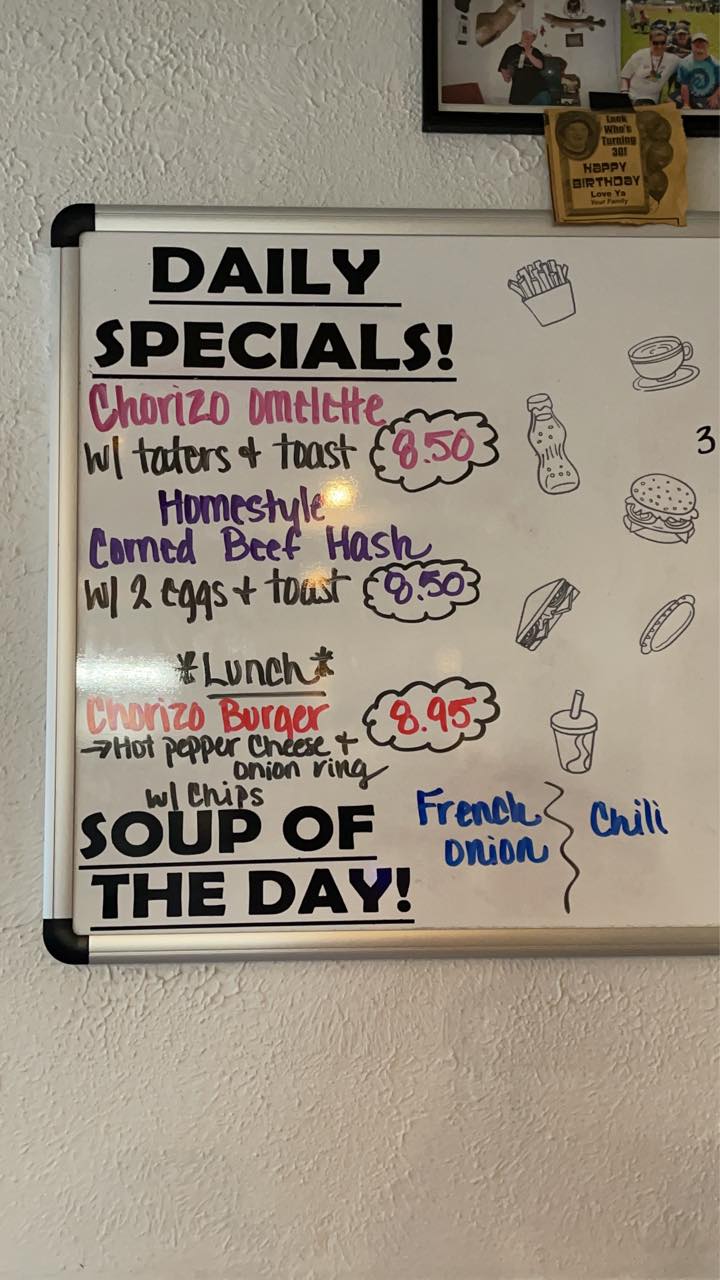 Look
Who's
Turning
30!
HAPPY
BIRTHDAY
Love Ya
Your Family
DAILY
SPECIALS!
Chorizo Omelette
w/ taters + toast 8.50
Homestyle
Corned Beef Hash
w/ 2 eggs + toast 8.50
3
*Lunch*
Chorizo Burger 8.95
→Hot pepper cheese +
onion ring
w/ Chips
SOUP OF
THE DAY!
French
onion
Chili